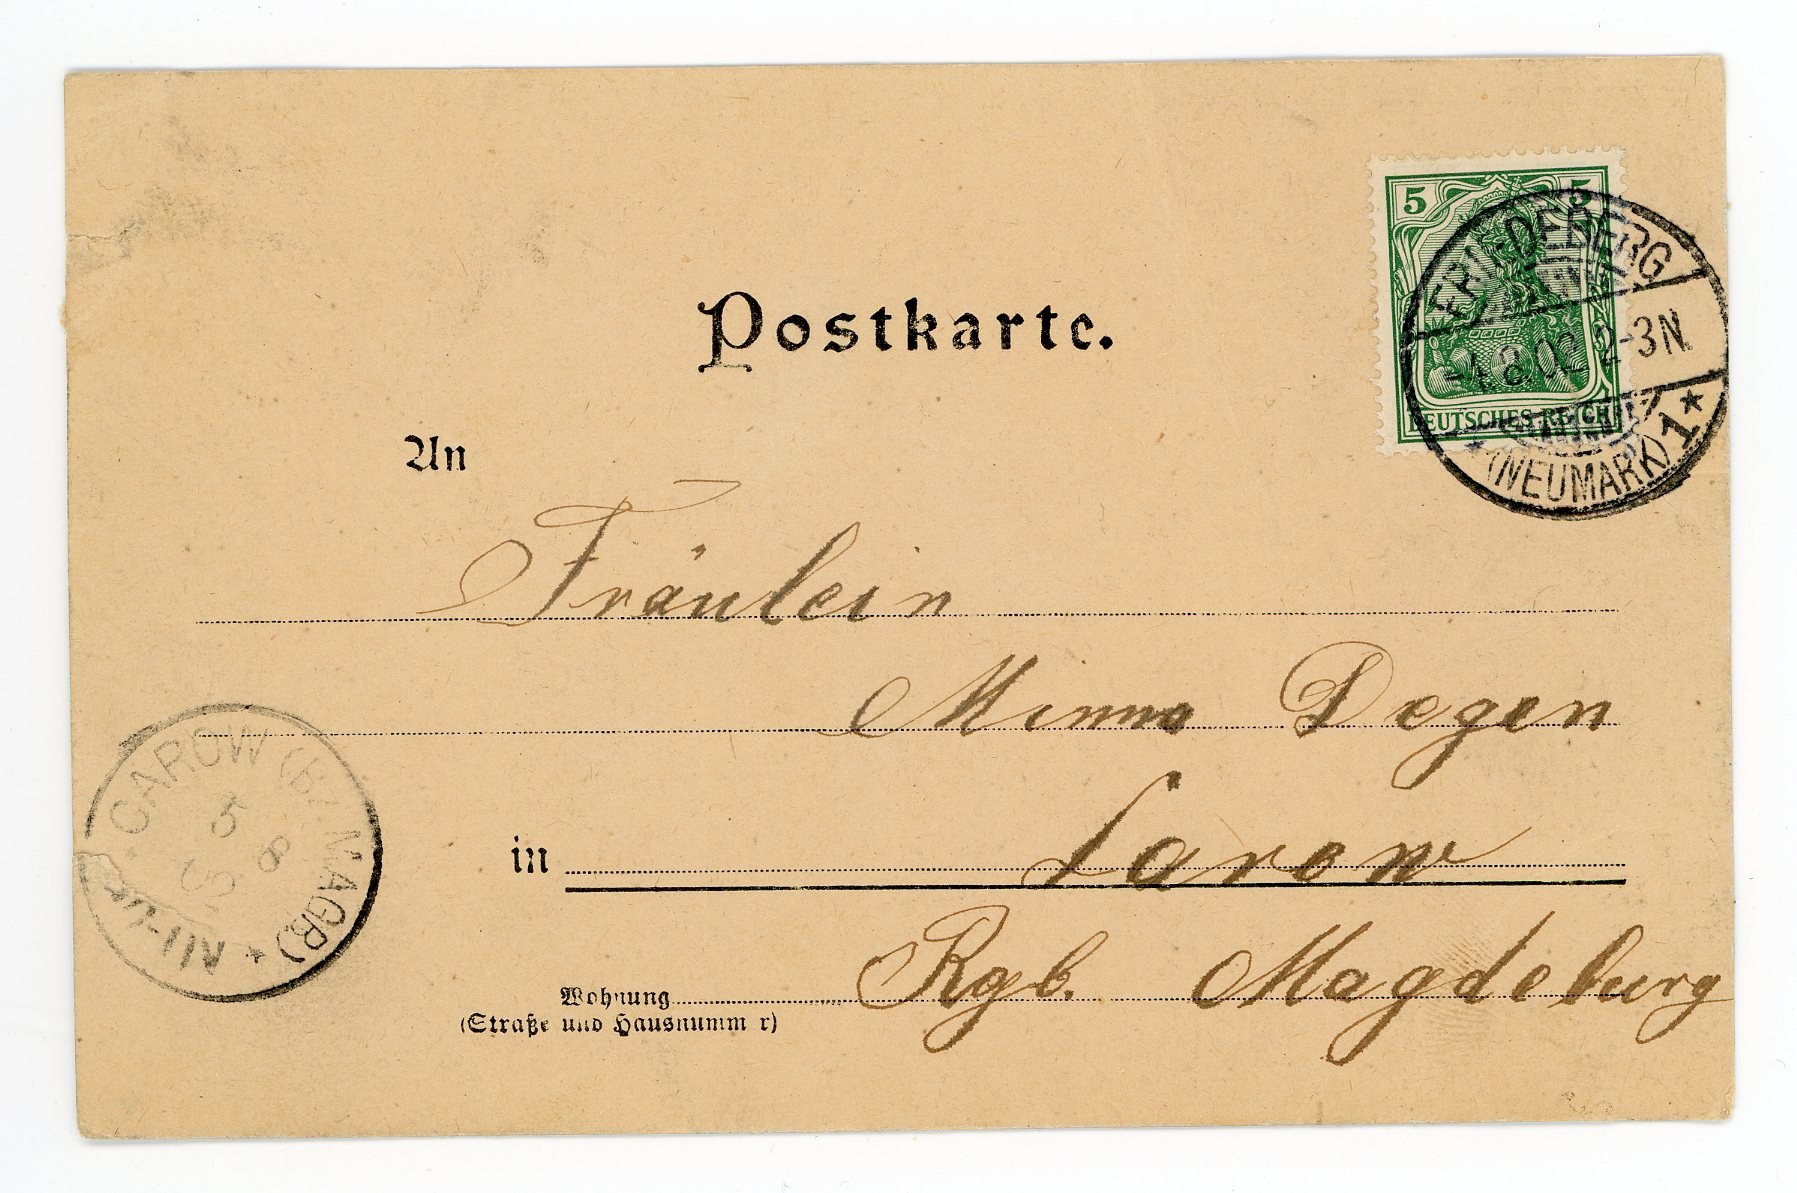 5 5
FRIEDEBERG
-4.8.02 2-3N.
DEUTSCHES REICH
(NEUMARK) 1 *
Postkarte.
An
Fräulein
Minna Degen
in Carow
Rgb. Magdeburg
Wohnung
(Straße und Hausnumm r)
CAROW (Bz. MAGB)
5
8